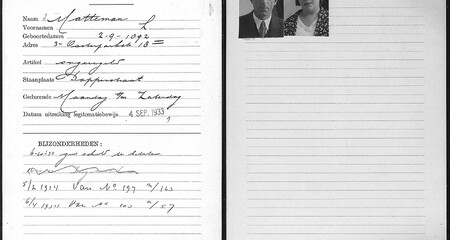 Naam Matteman
Voornamen L
Geboortedatum 2-9-1892
Adres 3e Oosterparkstr 18
Artikel ongeregeld
Staanplaats Dapperstraat
Gedurende Maandag t/m Zaterdag
Datum uitreiking legitimatiebewijs 4 SEP. 1933
BIJZONDERHEDEN:
5/2 1934 Van No 197 n/103
6/4 1934 Van No 103 n/57